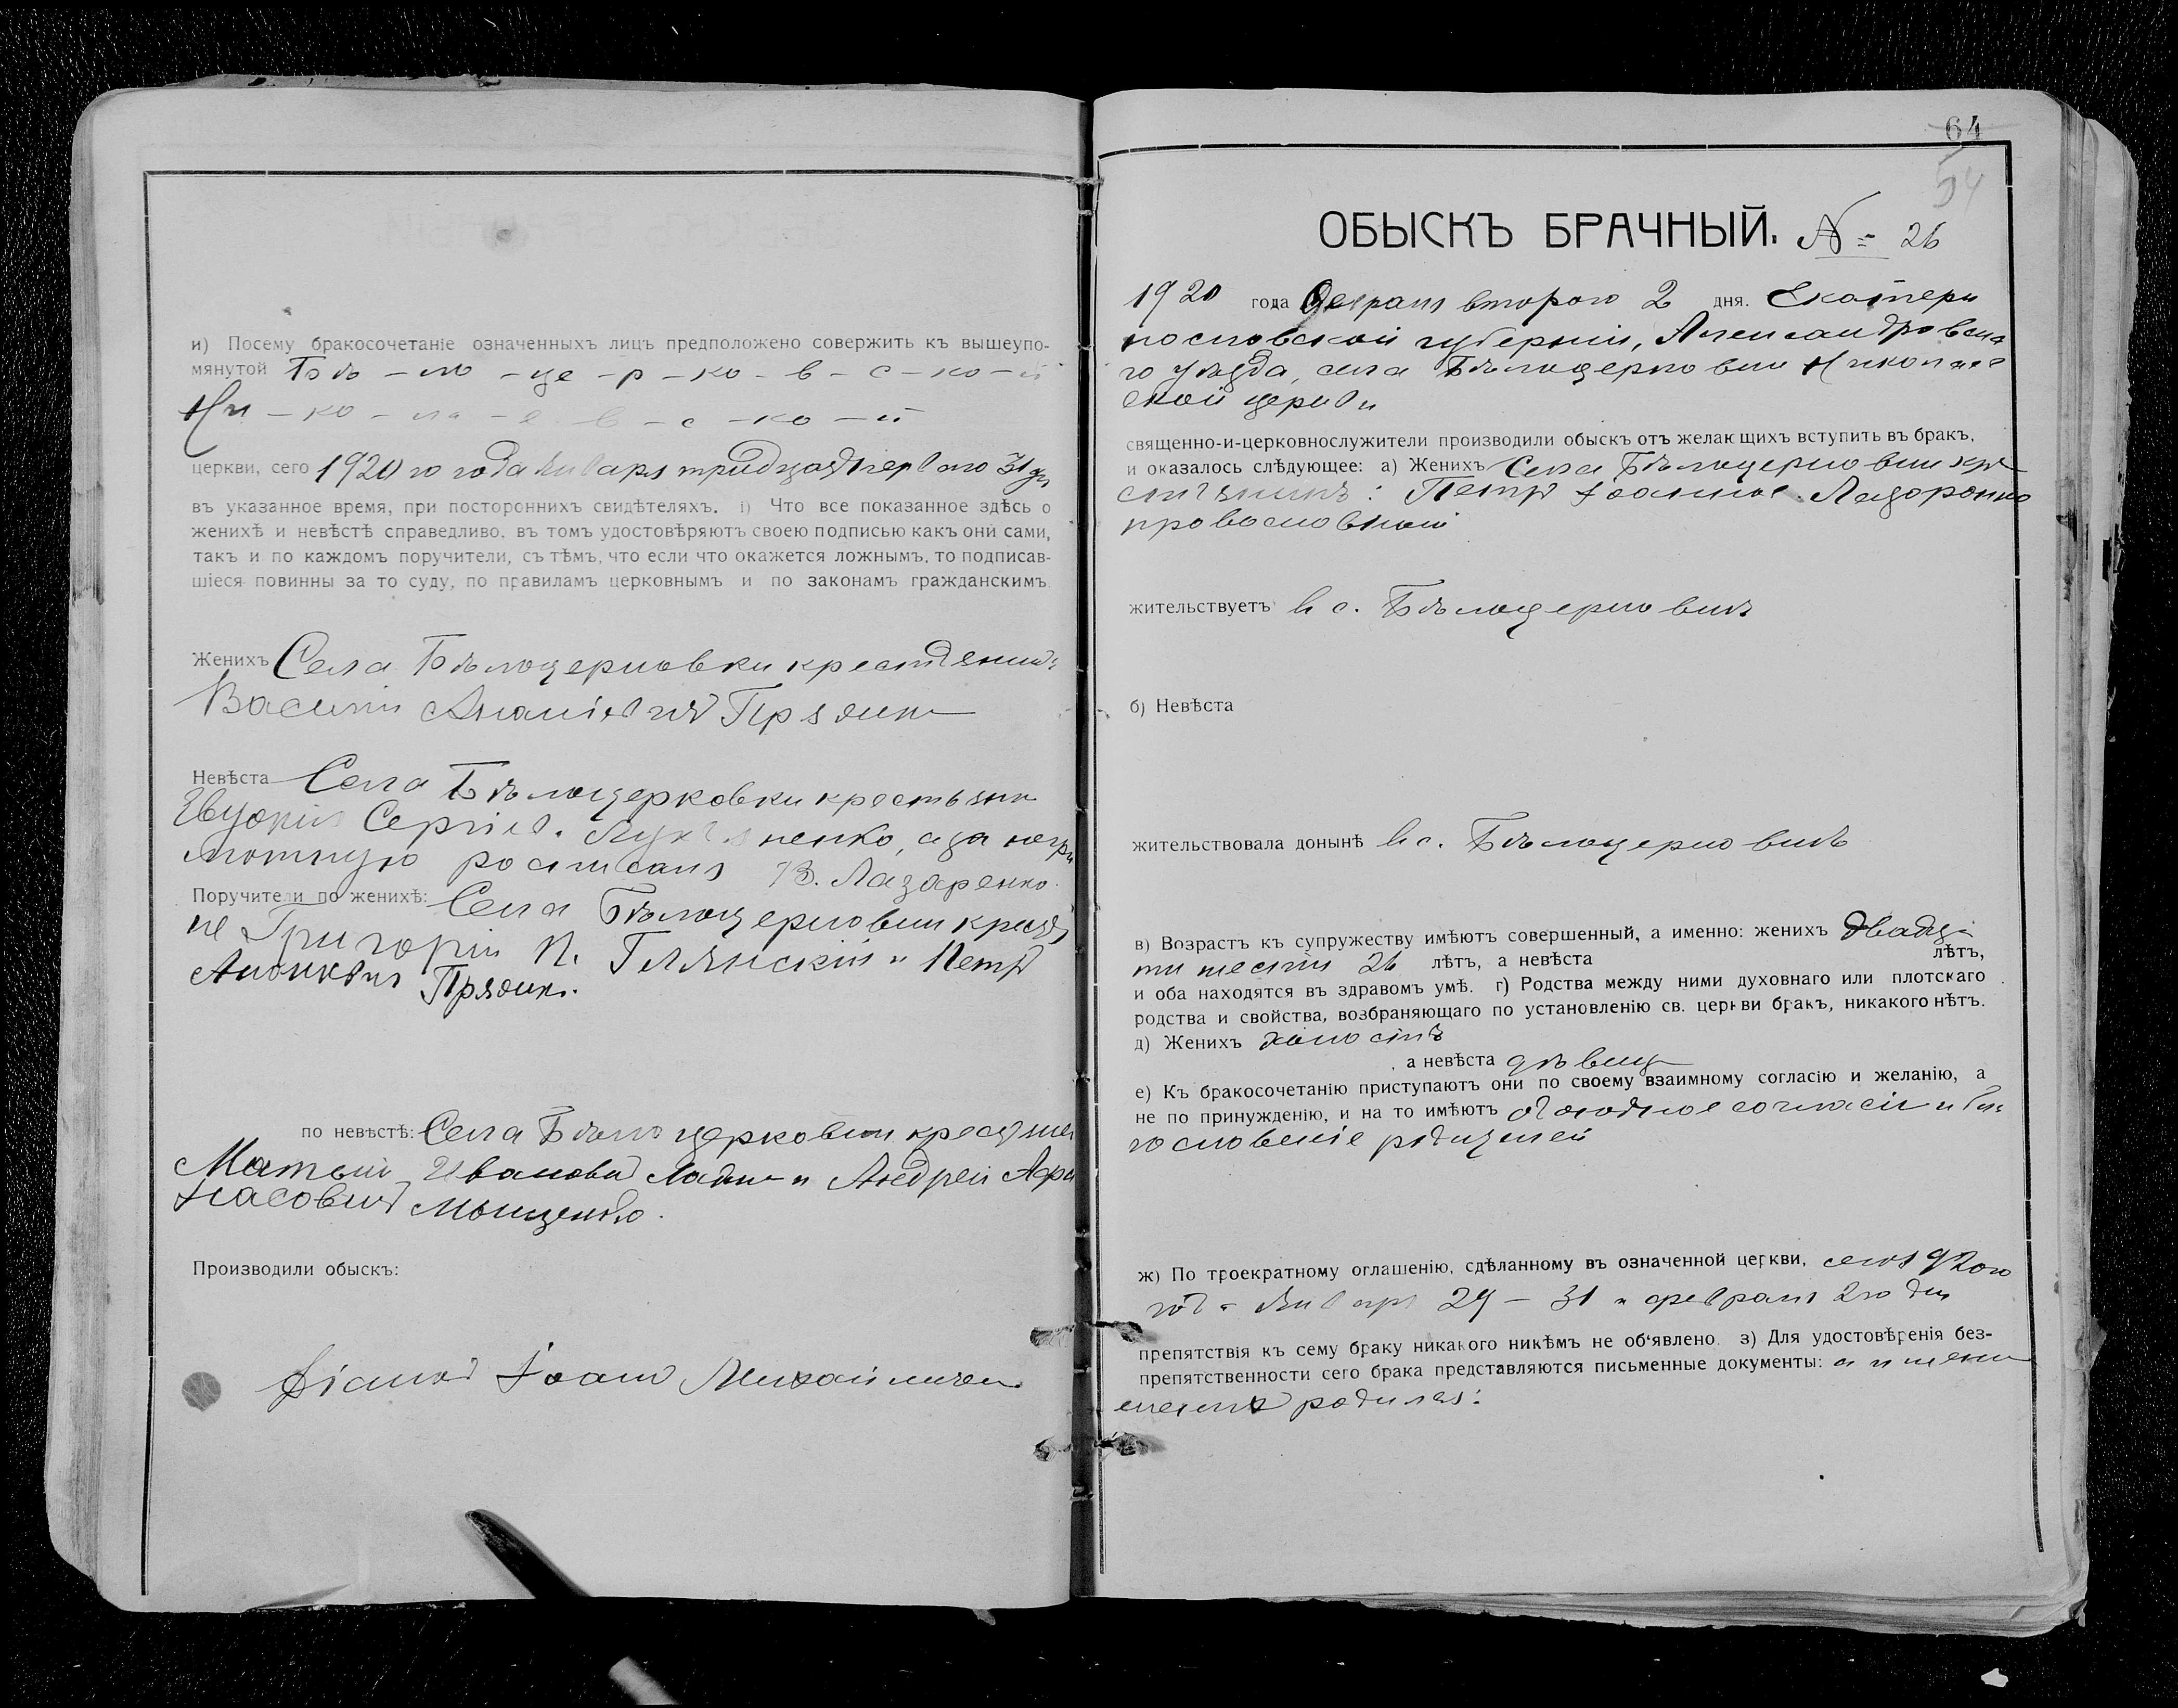 и) Посему бракосочетаніе означенныхъ лицъ предположено совержить къ вышеупо-
мянутой Бѣ – ло – це – р – ко – в – с – ко – й
Ни – ко – ла – е – в – с – ко – й
церкви, сего 1920 го года Января тридцать перваго 31 дня
въ указанное время, при постороннихъ свидѣтеляхъ. і) Что все показанное здѣсь о
женихѣ и невѣстѣ справедливо, въ томъ удостовѣряютъ своею подписью какъ они сами,
такъ и по каждомъ поручители, съ тѣмъ, что если что окажется ложнымъ, то подписав-
шіеся повинны за то суду, по правиламъ церковнымъ и по законамъ гражданскимъ.
Женихъ Села Бѣлоцерковки крестьянинъ
Василій Ананіевичъ
Невѣста Села Бѣлоцерковки крестьянк
Сергіев. ненко, а за негра
мотную росписался В. Лазаренко.
Поручители по женихѣ: Села Бѣлоцерковки крестья
не Григорій П. и Петръ
по невѣстѣ: Села Бѣлоцерковки крестьяне
Матвѣй Ивановъ и Андрей Афа
насовичъ
Производили обыскъ:
Діаконъ Іоаннъ
64
54
ОБЫСКЪ БРАЧНЫЙ. № 26
1920 года Февраля второго 2 дня. Екатери
нославской губерніи, Александровска
го уѣзда, села Бѣлоцерковки Николаев
ской церкви
священно-и-церковнослужители производили обыскъ отъ желающихъ вступить въ бракъ,
и оказалось слѣдующее: а) Женихъ Села Бѣлоцерковки кре
стьянинъ: Петръ Іоаннов. Лазаренко
православный
жительствуетъ в с. Бѣлоцерковкѣ
б) Невѣста
жительствовала донынѣ в с. Бѣлоцерковкѣ
в) Возрастъ къ супружеству имѣютъ совершенный, а именно: женихъ двадца
ти шести 26 лѣтъ, а невѣста лѣтъ,
и оба находятся въ здравомъ умѣ. г) Родства между ними духовнаго или плотскаго
родства и свойства, возбраняющаго по установленію св. церкви бракъ, никакого нѣтъ.
д) Женихъ холостъ
, а невѣста дѣвица
е) Къ бракосочетанію приступаютъ они по своему взаимному согласію и желанію, а
не по принужденію, и на то имѣютъ обоюдное согласіе и бла
гословеніе родителей
ж) По троекратному оглашенію, сдѣланному въ означенной церкви, сего 1920 го
года Января 29 – 31 и февраля 2 го дня
препятствія къ сему браку никакого никѣмъ не об'явлено. з) Для удостовѣренія без-
препятственности сего брака представляются письменные документы:
родился: